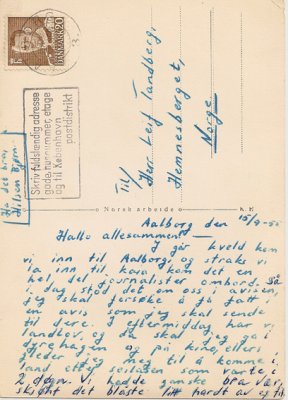 DANMARK 20
Skriv fuldstændig adresse
gade, husnummer, etage
og til København
postdistrikt
Ha det bra,
Hilsen Bjørn
Til
Herr Leif Tandberg,
Hemnesberget,
Norge
Norsk arbeide
Aalborg den 15/7-52
Hallo allesammen!
I går kveld kom
vi inn til Aalborg, og straks vi
la inn til kaia, kom det en
hel del journalister ombord. Så
i dag stod det om oss i avisen,
jeg skal forsøke å få fatt i
en avis som jeg skal sende
til dere. I eftermiddag har vi
landlov, og da skal jeg gå i
dyrehagen og på kino, ellers
gleder jeg meg til å komme i
land etter seilasen som varte i
2 døgn. Vi hadde ganske bra vær,
skjønt det blåste litt hardt av og til